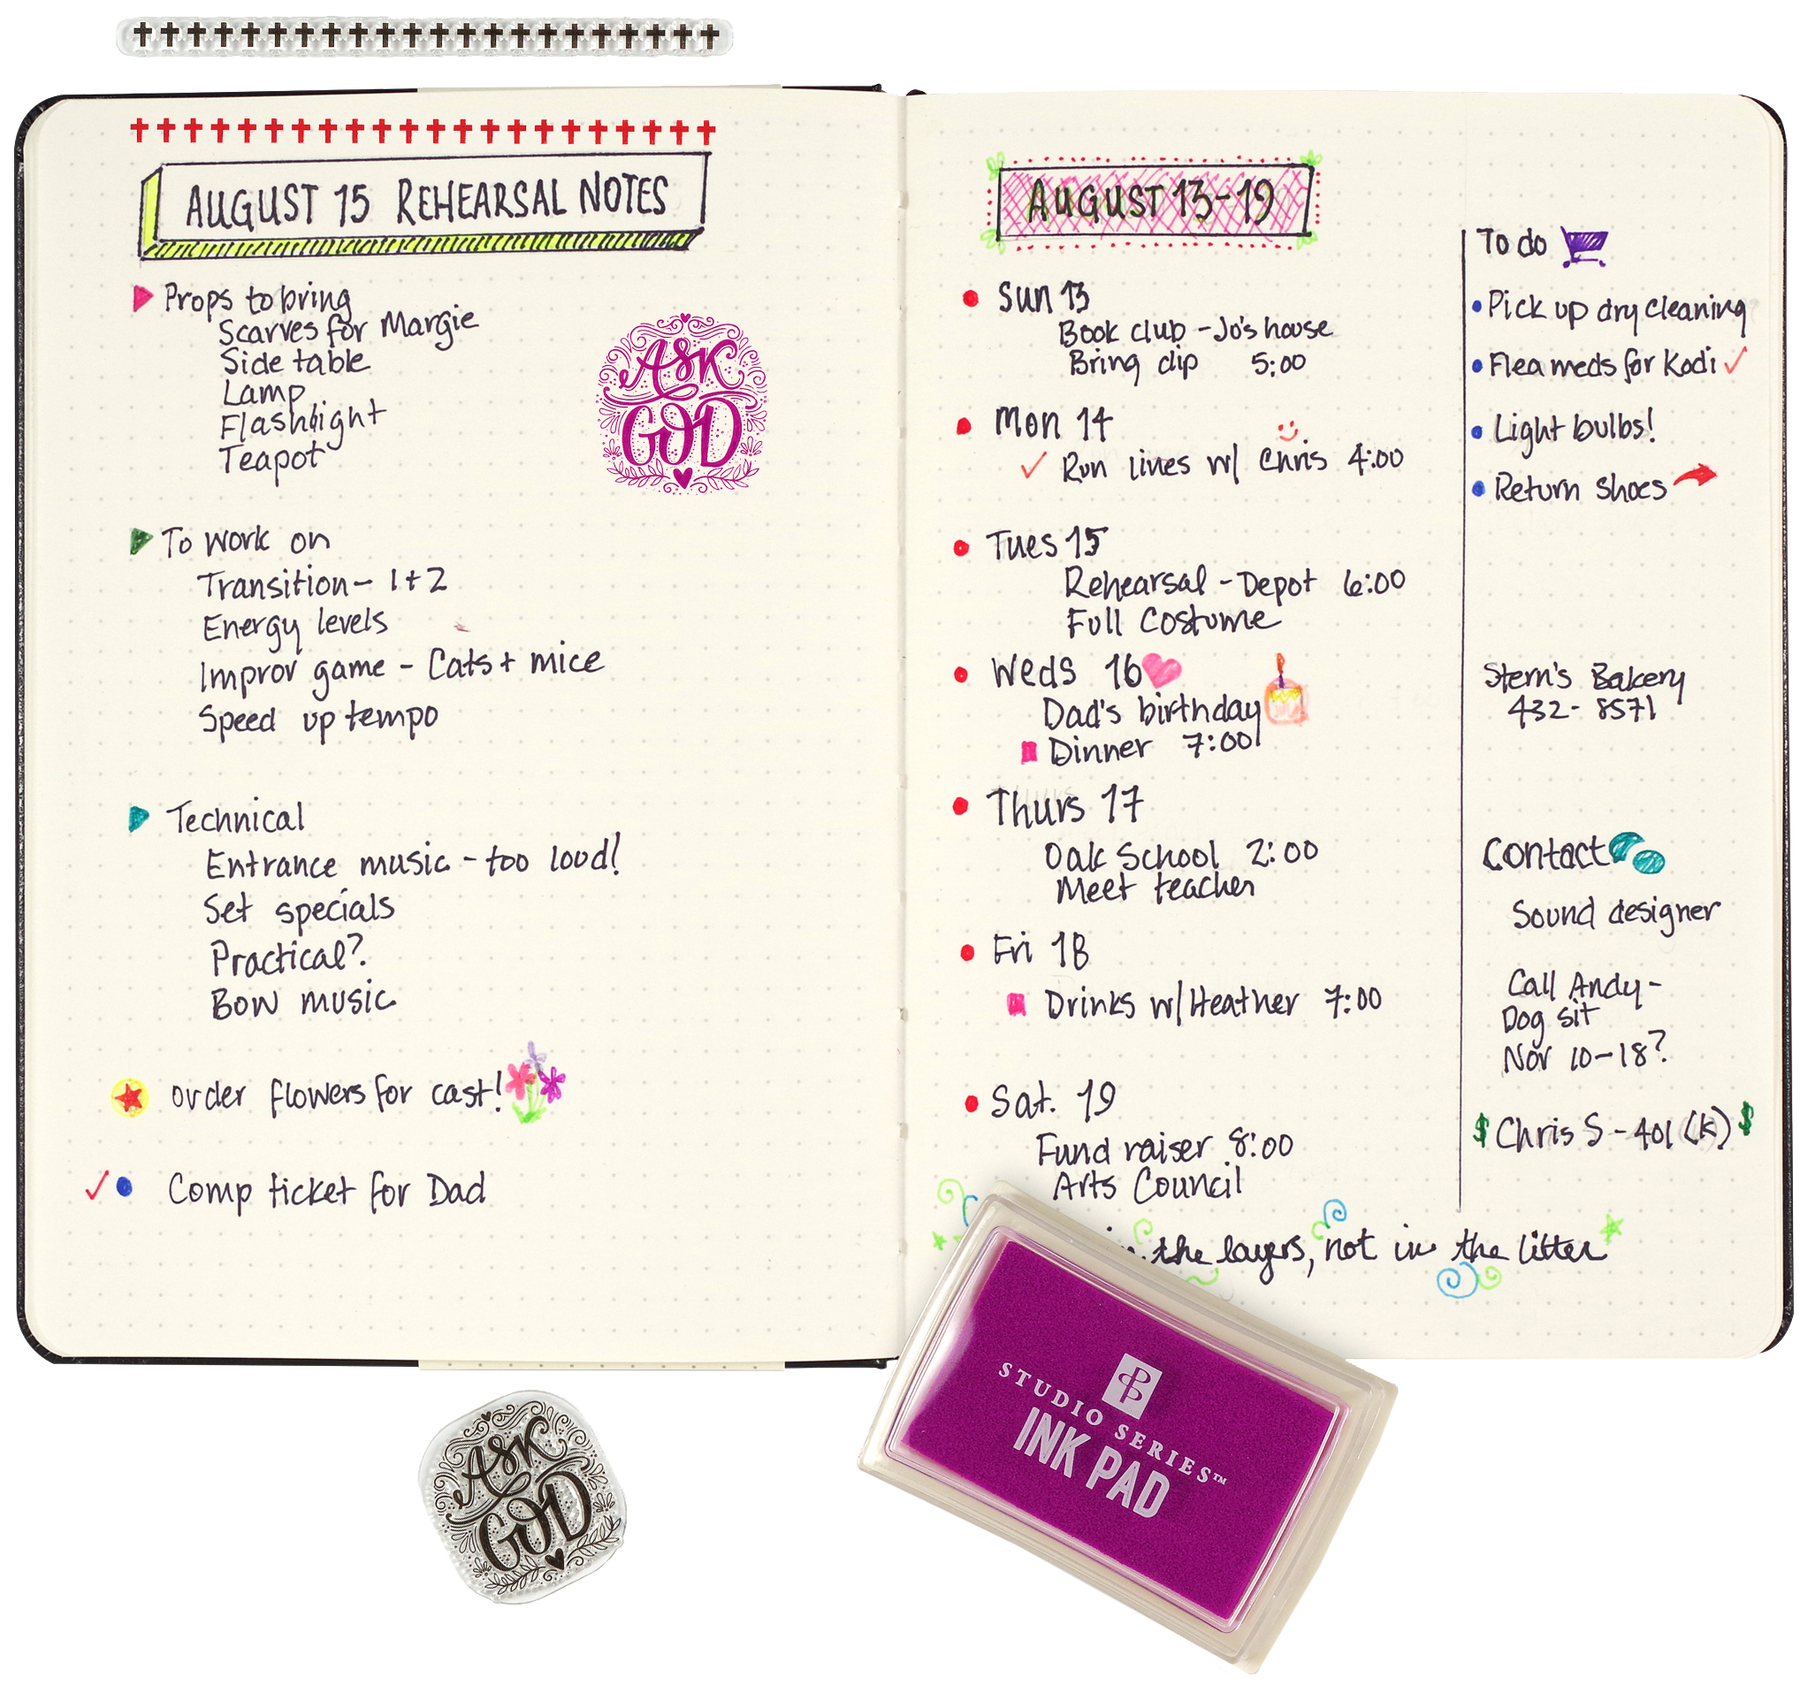 AUGUST 15 REHEARSAL NOTES
Props to bring
Scarves for Margie
Side table
Lamp
Flashlight
Teapot
ASK
GOD
To work on
Transition - 1+2
Energy levels
Improv game - Cats + mice
Speed up tempo
Technical
Entrance music - too loud!
Set specials
Practical?
Bow music
order flowers for cast!
Comp ticket for Dad
AUGUST 13-19
Sun 13
Book club - Jo's house
Bring dip 5:00
Mon 14
Run lines w/ Chris 4:00
Tues 15
Rehearsal - Depot 6:00
Full Costume
Weds 16
Dad's birthday
Dinner 7:00
Thurs 17
Oak School 2:00
Meet teacher
Fri 18
Drinks w/ Heather 7:00
Sat. 19
Fund raiser 8:00
Arts Council
in the layers, not in the litter
To do
Pick up dry cleaning
Flea meds for Kodi
Light bulbs!
Return shoes
Stern's Bakery
432-8571
Contact
Sound designer
Call Andy-
Dog sit
Nov 10-18?
$ Chris S - 401(k) $
ASK
GOD
STUDIO SERIES™
INK PAD